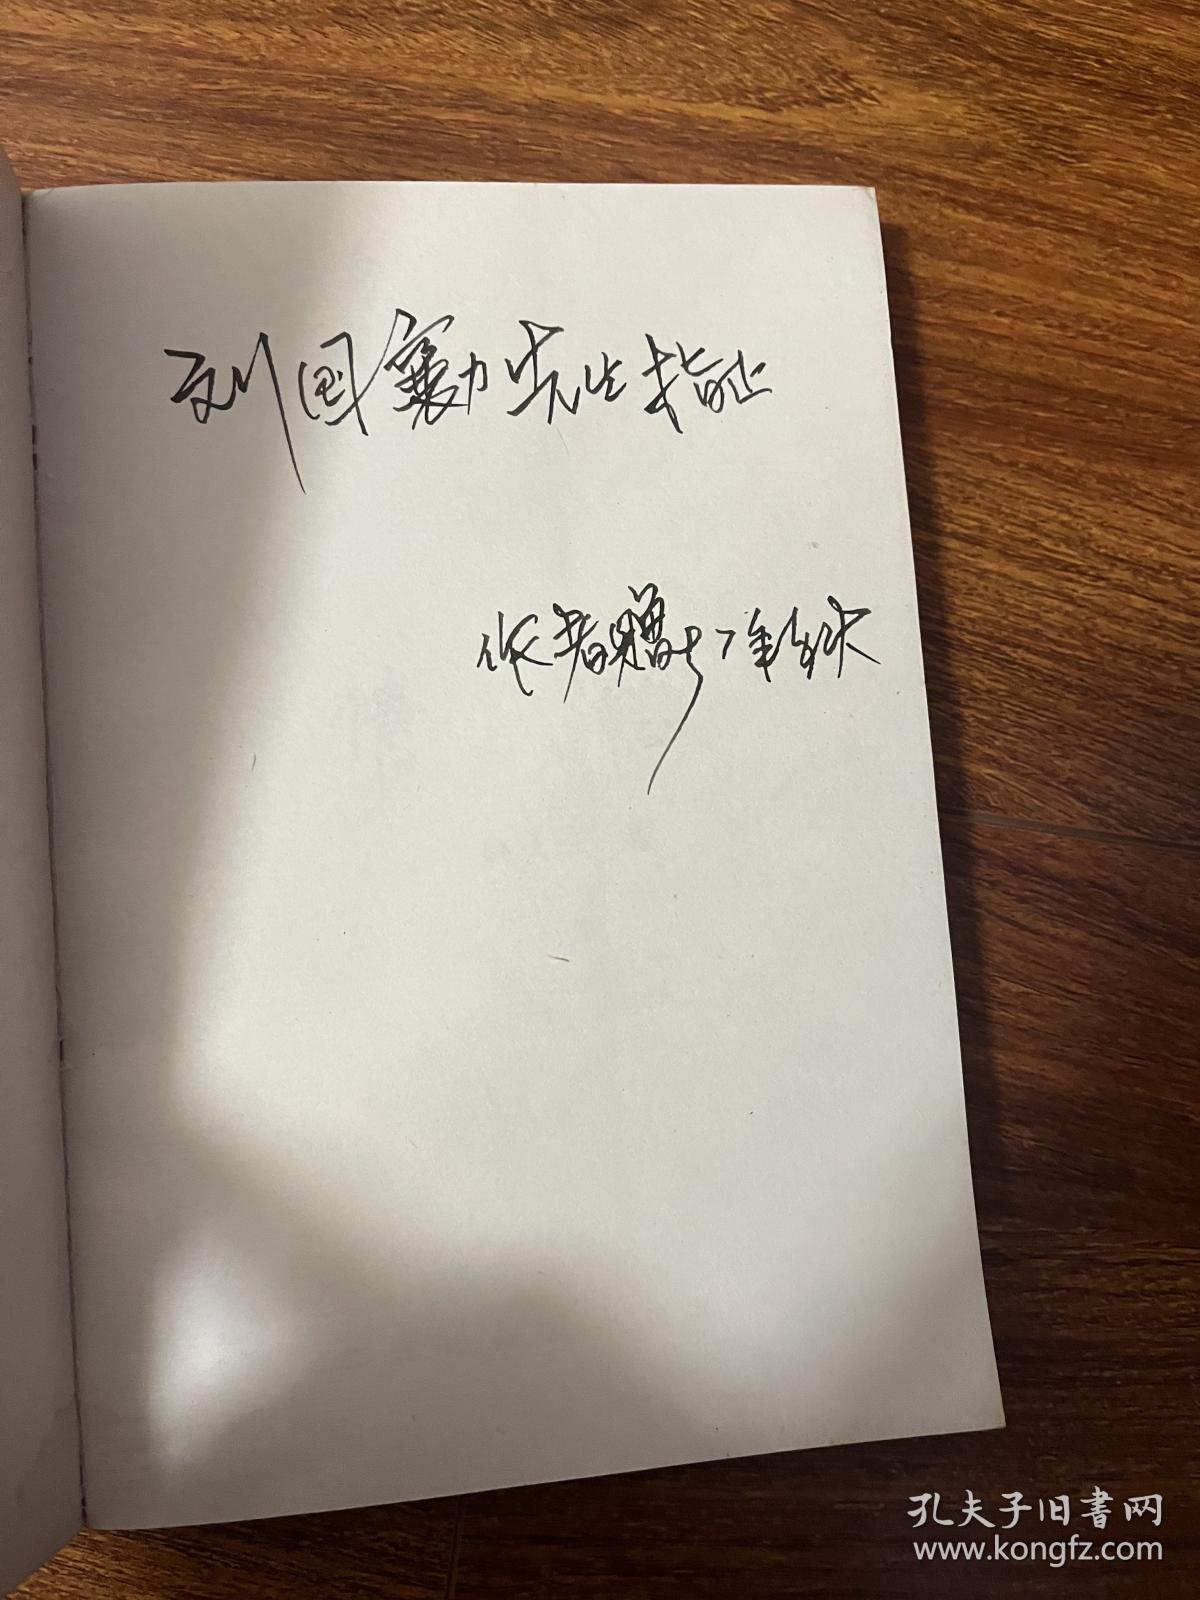 刘国勷先生指正
作者赠于年铁
孔夫子旧書网
www.kongfz.com